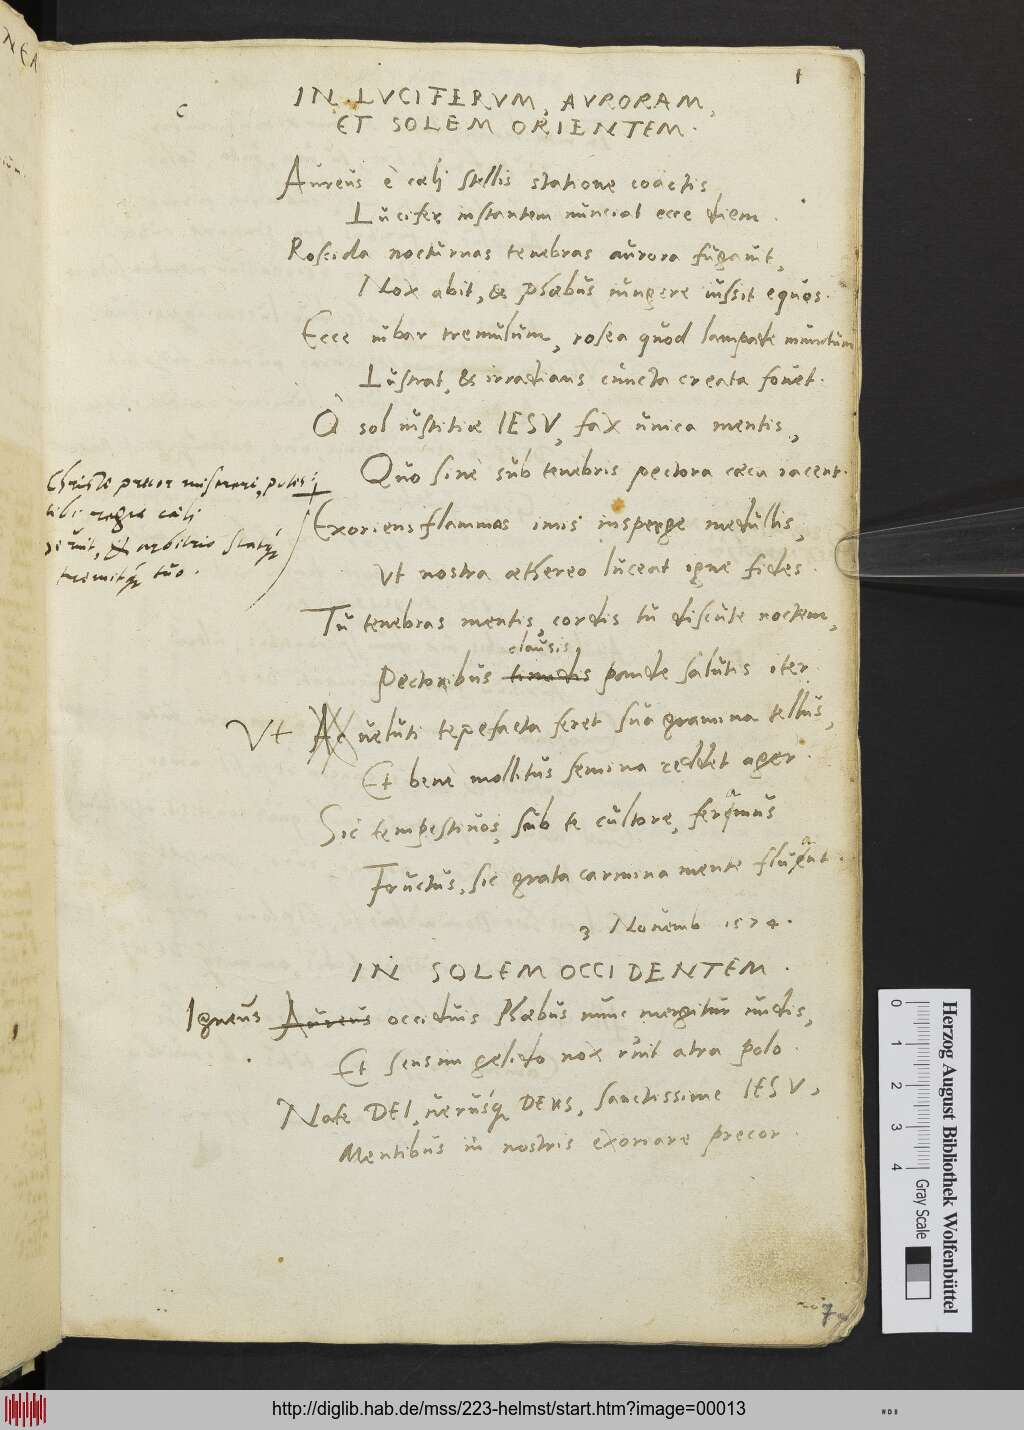 NEA
1
c
IN LVCIFERVM, AVRORAM,
ET SOLEM ORIENTEM.
Aureus è cælj stellis statione coactis
Lucifer instantem nunciat ecce diem.
Roscida nocturnas tenebras aurora fugauit,
Nox abit, & Phœbus iungere iussit equos.
Ecce iubar tremulum, rosea quod lampade mundum
Lustrat, & irradians cuncta creata fouet.
O sol iustitiæ IESV, fax unica mentis,
Quo sine sub tenebris pectora cæca iacent.
Christe precor miserere, potes
tibi regia cælj
seruit, & arbitrio statq́
tremitq́ tuo.
Exoriens flammas imis insperge medullis,
Vt nostra æthereo luceat igne fides.
Tu tenebras mentis, cordis tu discute noctem,
clausis
Pectoribus timidis pande salutis iter.
Vt Ac ueluti tepefacta feret sua gramina tellus,
Et bene mollitus semina reddet ager.
Sic tempestiuos, sub te cultore, feramus
Fructus, sic grata carmina mente fluant.
3 Nouemb 1574.
IN SOLEM OCCIDENTEM.
Igneus Aureus occiduis Phœbus nunc mergitur undis,
Et sensim gelido nox ruit atra polo.
Nate DEI, uerusq́ DEus, sanctissime IESV,
Mentibus in nostris exoriare precor.
Herzog August Bibliothek Wolfenbüttel
0 1 2 3 4 Gray Scale
http://diglib.hab.de/mss/223-helmst/start.htm?image=00013